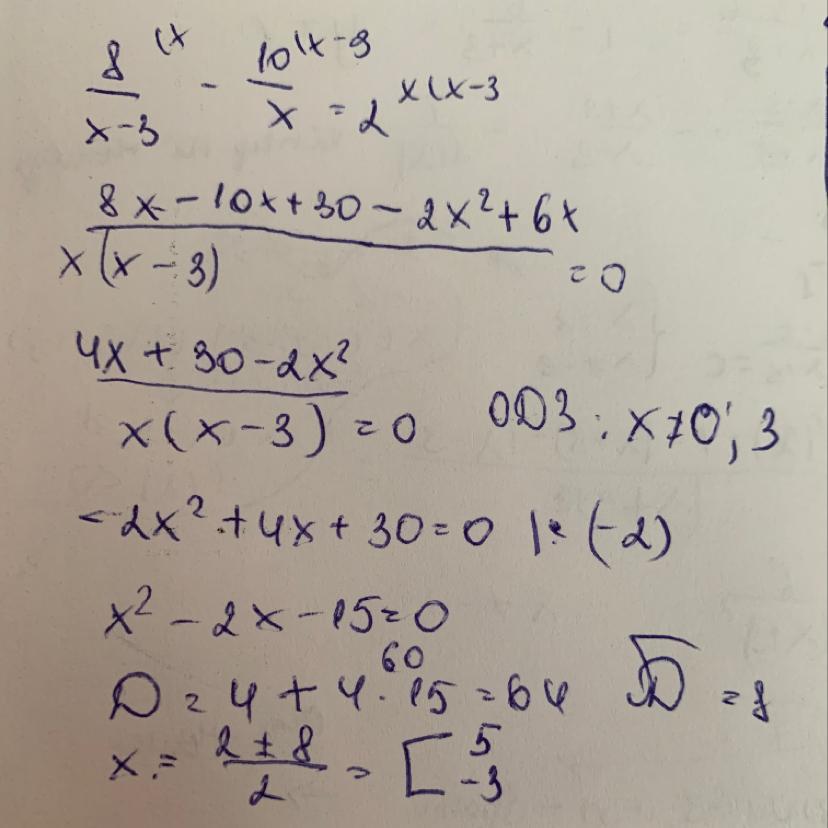 8 (x / x-3 - 10 (x-3 / x = 2 x(x-3
8x - 10x + 30 - 2x² + 6x / x(x-3) = 0
4x + 30 - 2x² / x(x-3) = 0 ОДЗ: x≠0; 3
-2x² + 4x + 30 = 0 |: (-2)
x² - 2x - 15 = 0
60
D = 4 + 4·15 = 64 √D = 8
x = 2 ± 8 / 2 = [ 5 -3